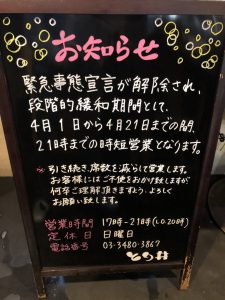 お知らせ
緊急事態宣言が解除され、
段階的緩和期間として、
4月1日から4月21日までの間、
21時までの時短営業となります。
※引き続き、席数を減らして営業します。
お客様にはご不便をおかけ致しますが
何卒ご理解頂きますよう、よろしく
お願い致します。
営業時間 17時-21時(L.O.20時)
定休日 日曜日
電話番号 03-3480-3867